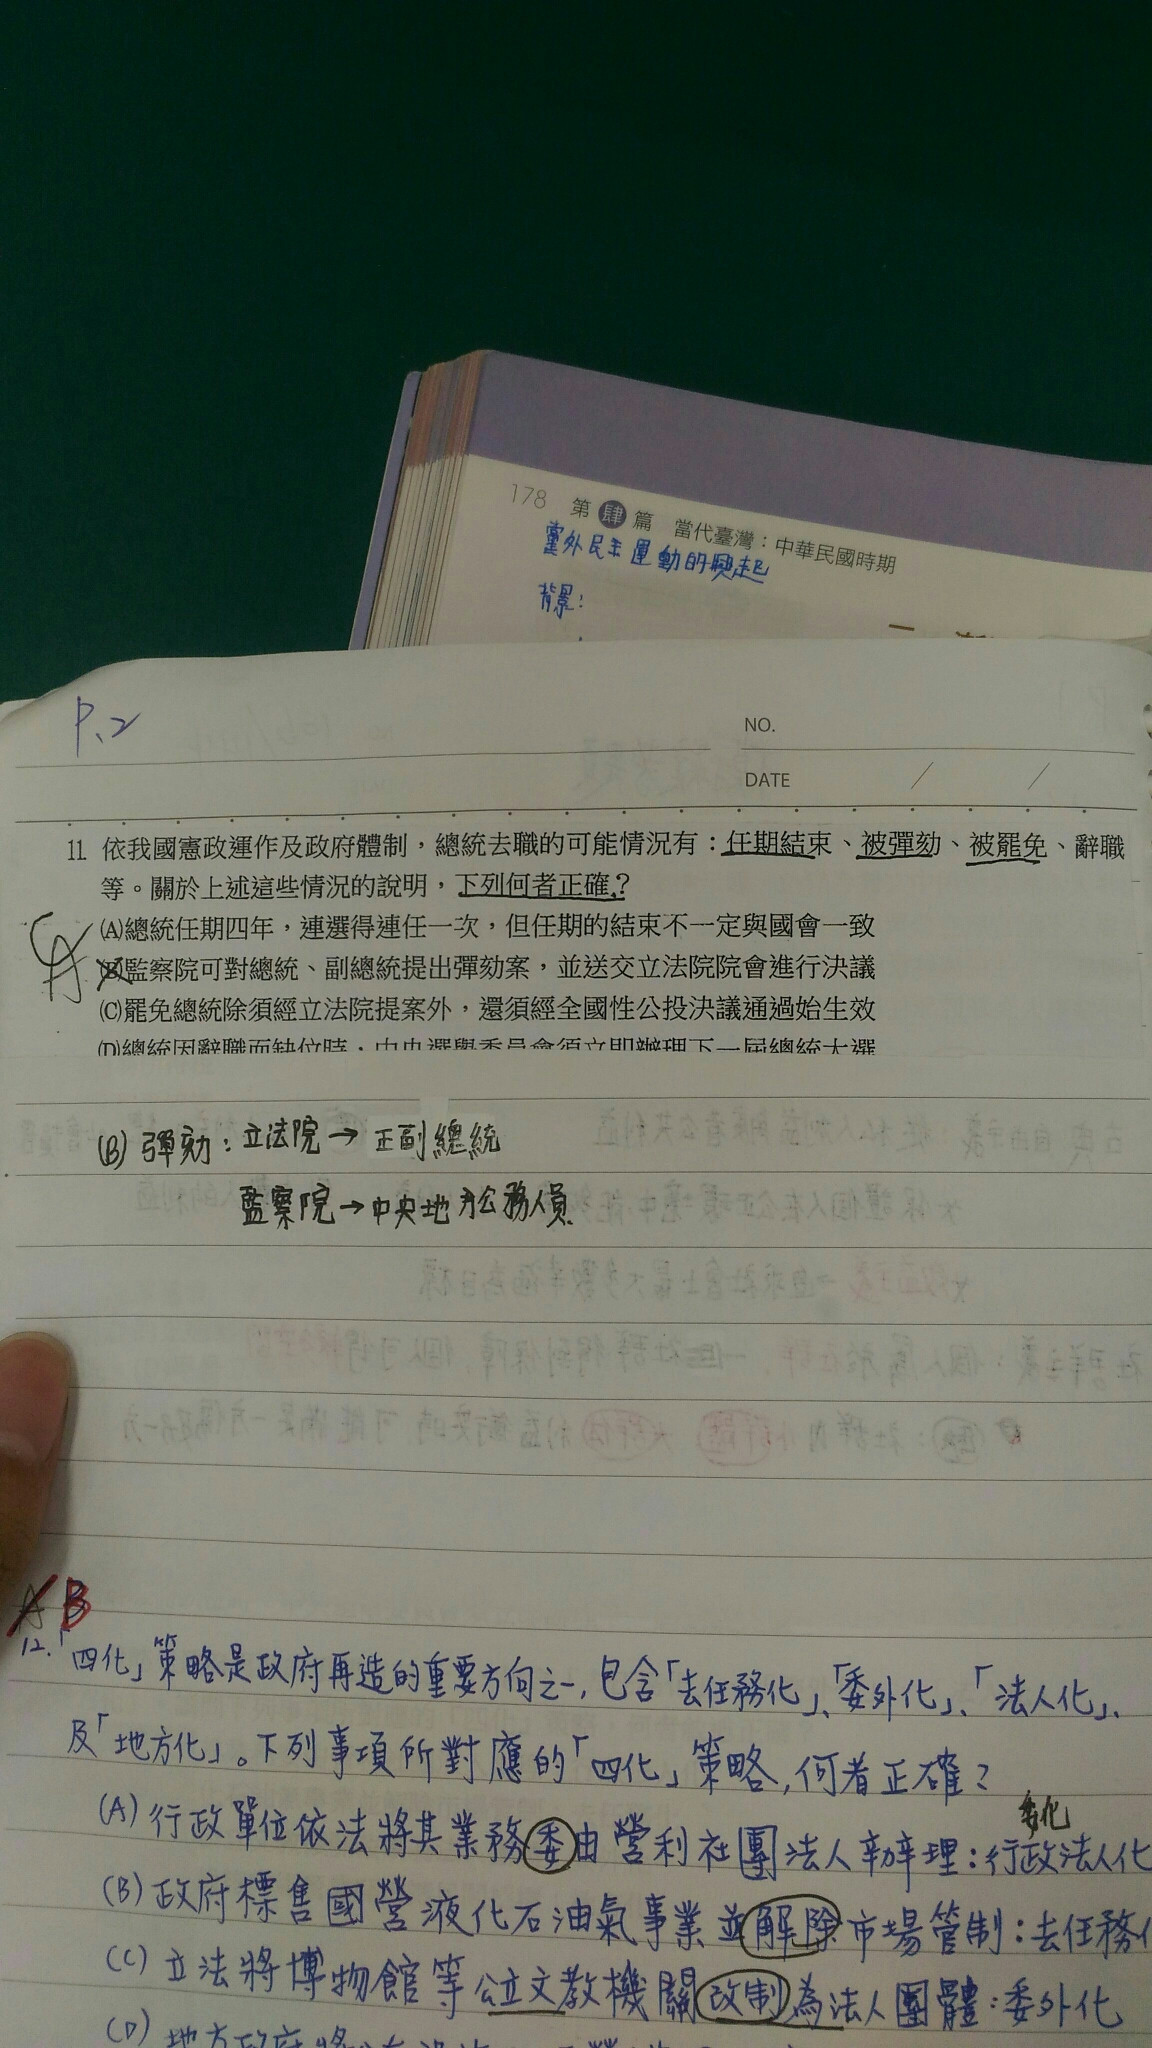 178 第肆篇 當代臺灣：中華民國時期
黨外民主運動的興起
背景：
P.2
NO.
DATE / /
11 依我國憲政運作及政府體制，總統去職的可能情況有：任期結束、被彈劾、被罷免、辭職
等。關於上述這些情況的說明，下列何者正確？
(A)總統任期四年，連選得連任一次，但任期的結束不一定與國會一致
A
(B)監察院可對總統、副總統提出彈劾案，並送交立法院院會進行決議
(C)罷免總統除須經立法院提案外，還須經全國性公投決議通過始生效
(D)總統因辭職而缺位時，中央選舉委員會須立即辦理下一屆總統大選
(B) 彈劾：立法院→正副總統
監察院→中央地方公務員
A B
12.「四化」策略是政府再造的重要方向之一，包含「去任務化」、「委外化」、「法人化」、
及「地方化」。下列事項所對應的「四化」策略，何者正確？
委外化
(A) 行政單位依法將其業務委由營利社團法人辦理：行政法人化
(B) 政府標售國營液化石油氣事業並解除市場管制：去任務化
(C) 立法將博物館等公立文教機關改制為法人團體：委外化
(D) 地方政府將